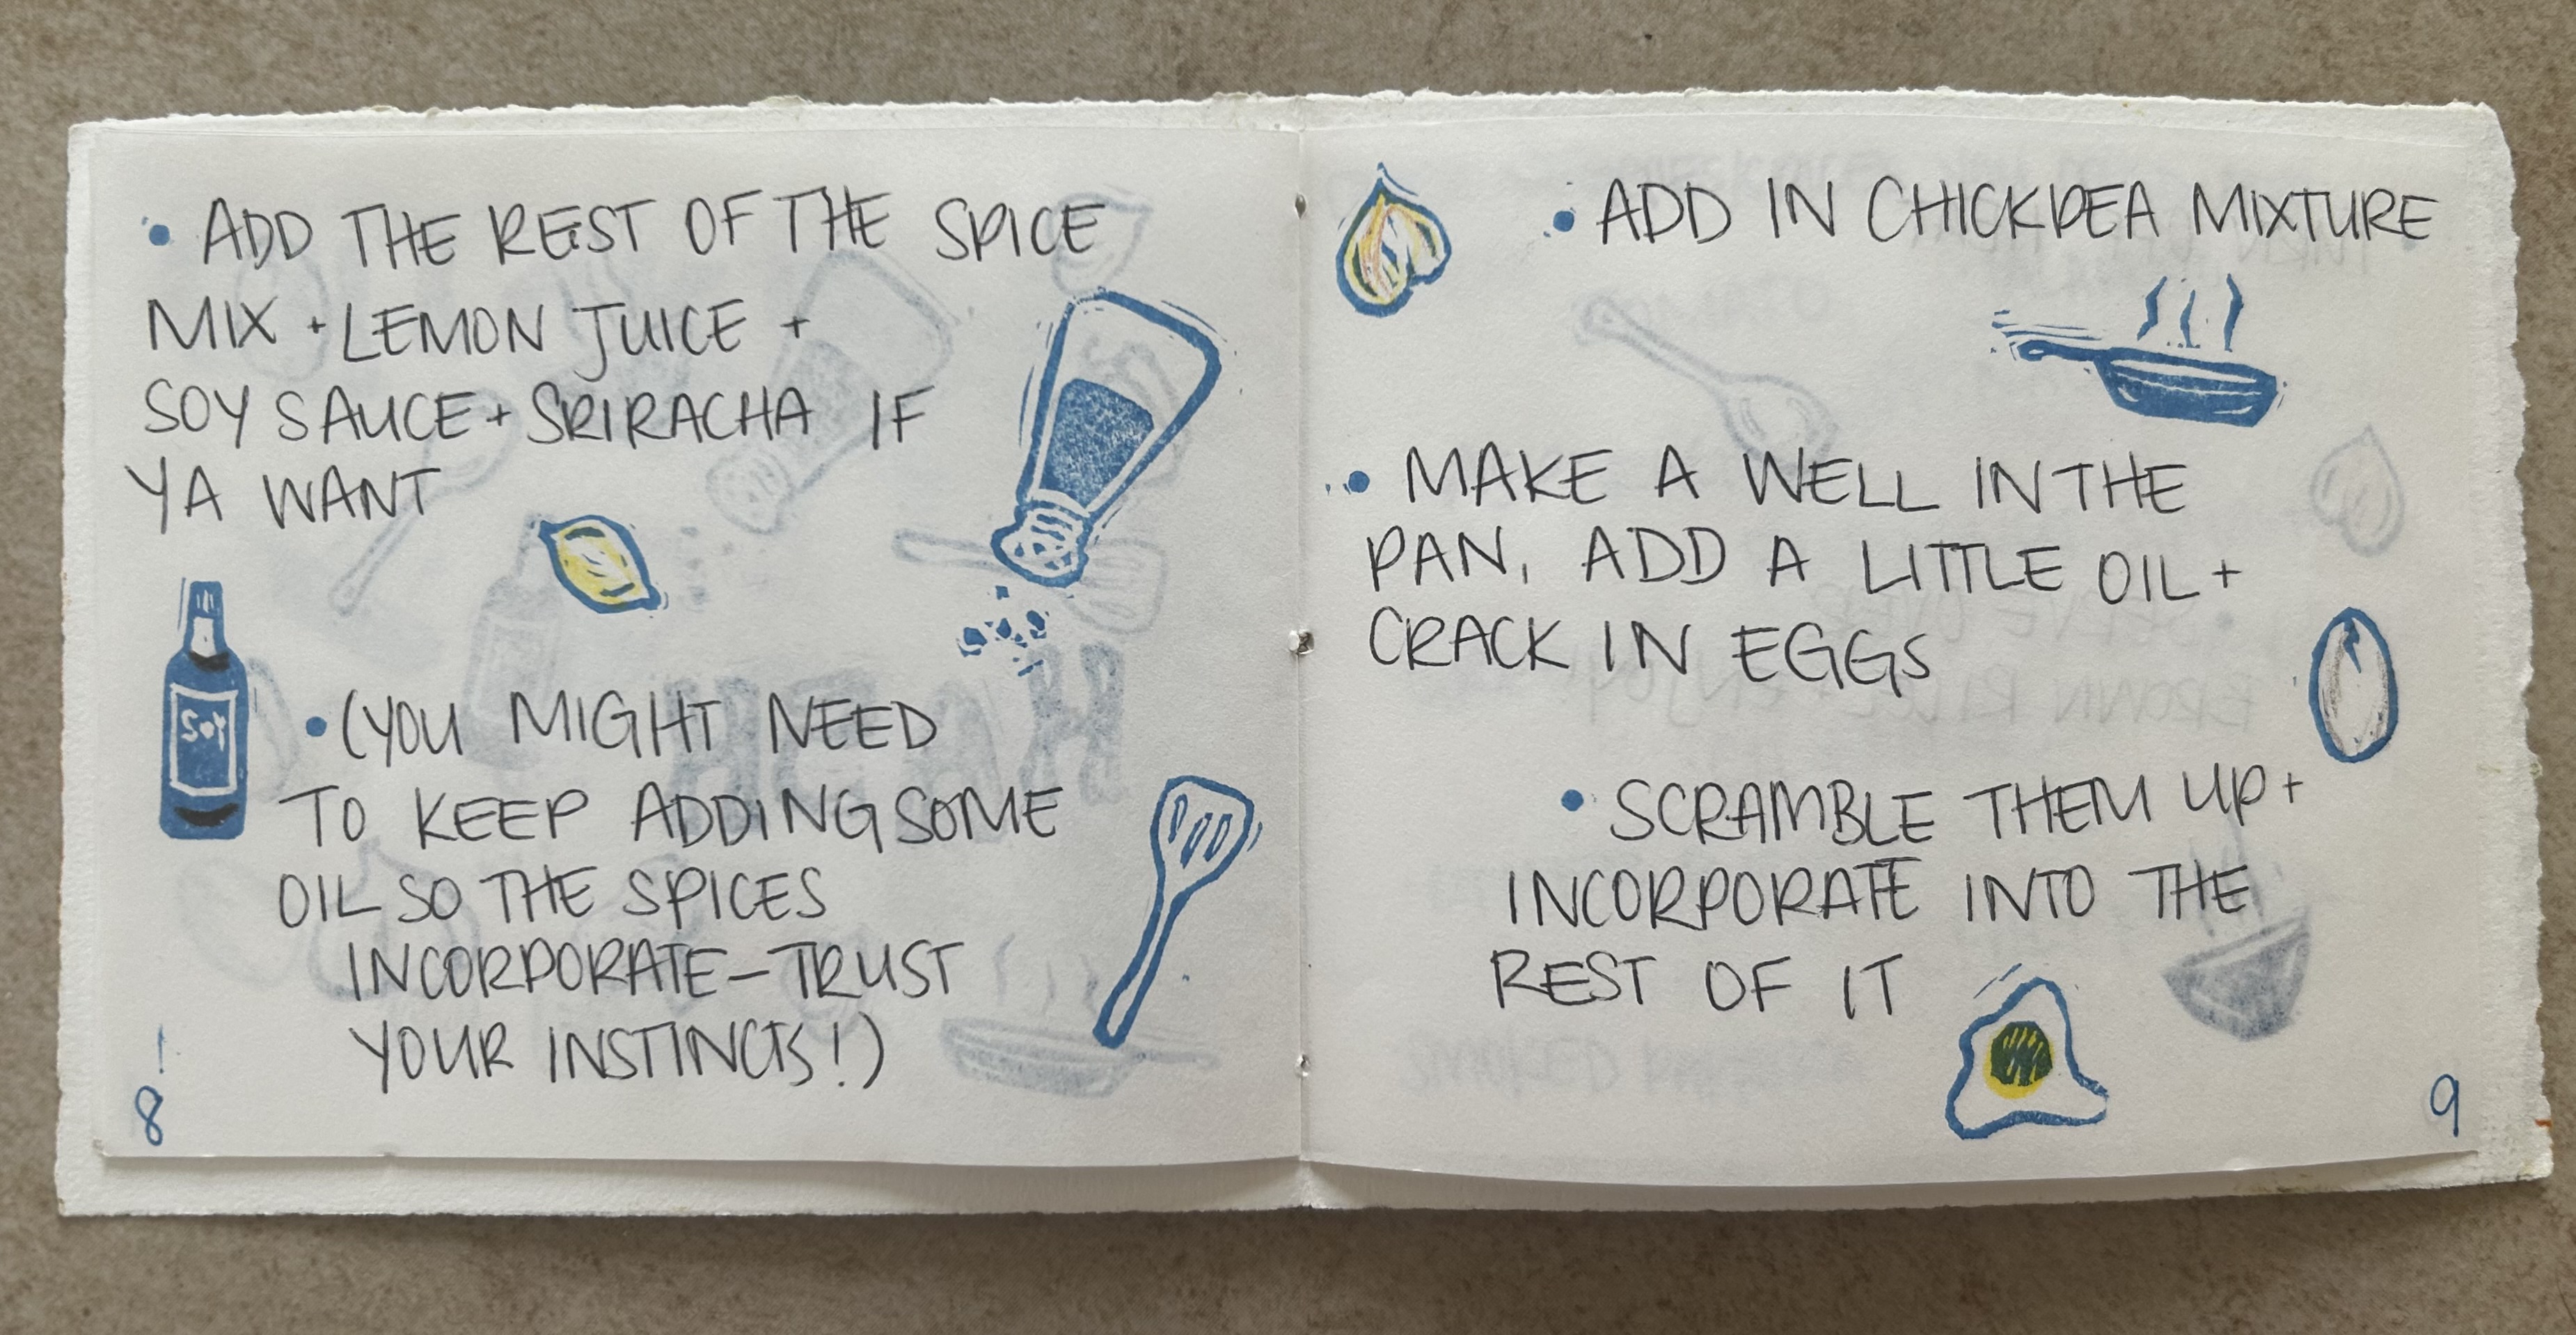 • ADD THE REST OF THE SPICE
MIX + LEMON JUICE +
SOY SAUCE + SRIRACHA IF
YA WANT
SOY
• (YOU MIGHT NEED
TO KEEP ADDING SOME
OIL SO THE SPICES
INCORPORATE – TRUST
YOUR INSTINCTS!)
8
• ADD IN CHICKPEA MIXTURE
• MAKE A WELL IN THE
PAN, ADD A LITTLE OIL +
CRACK IN EGGS
• SCRAMBLE THEM UP +
INCORPORATE INTO THE
REST OF IT
9